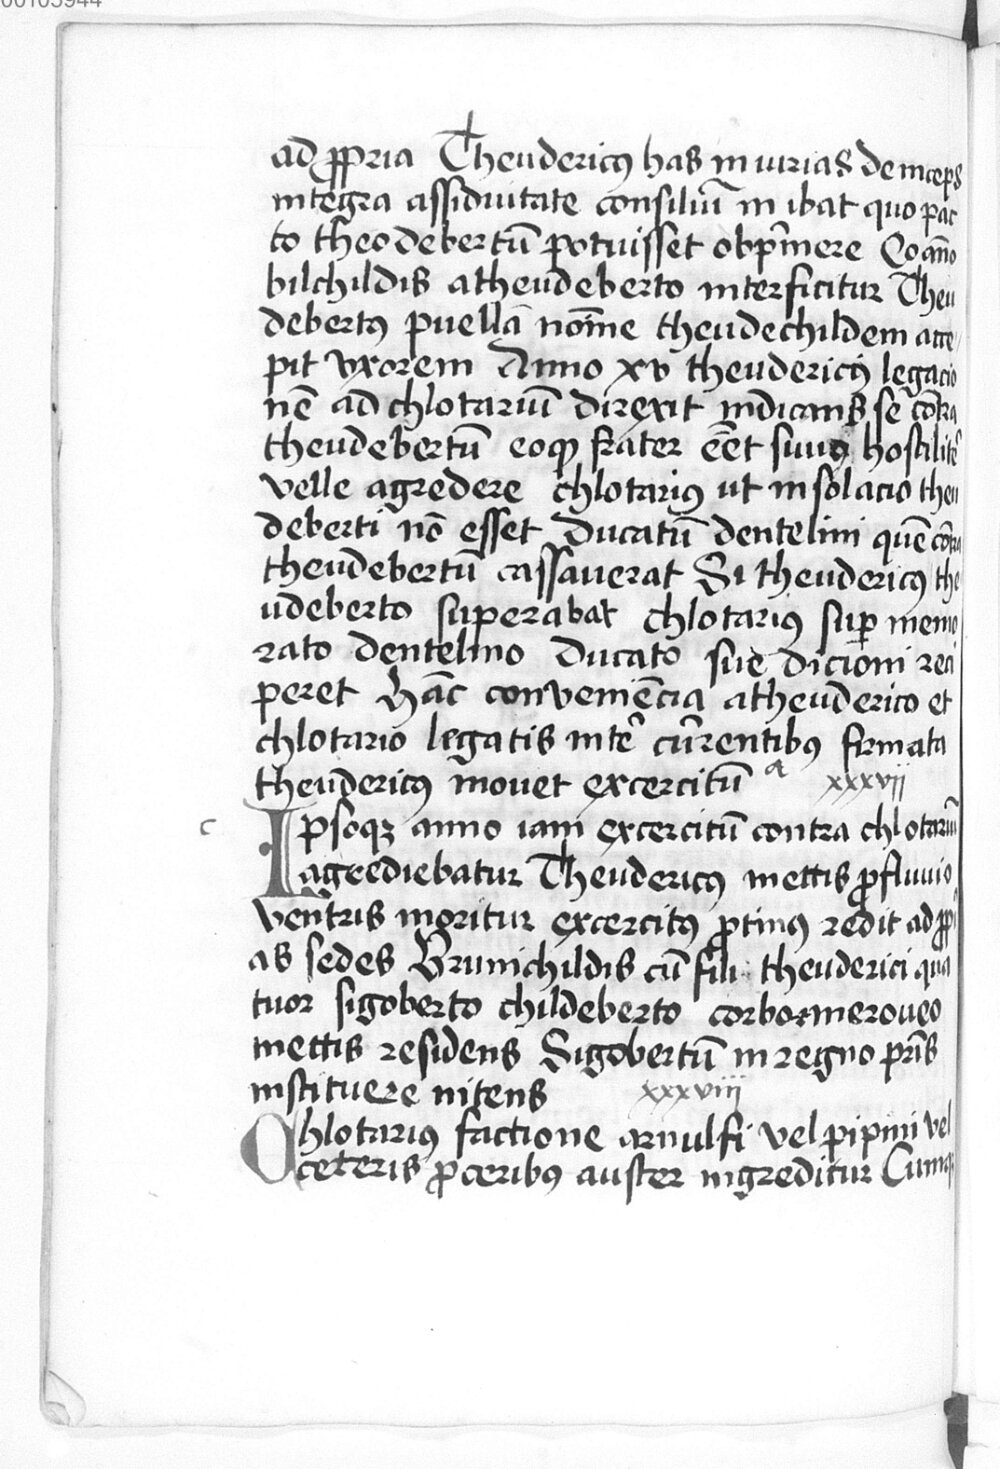 00105944
ad ꝓpria Theudericꝯ has in iurias deinceps
integra assiduitate consiliū in ibat quo pac
to theodebertū potuisset obp̄mere Eo an̄o
bilchildis a theudeberto interficitur Theu
debertꝯ puellā nom̄e theudechildem acce
pit vxorem Anno xv theudericꝯ legacio
nē ad chlotariū direxit indicans se cōtra
theudebertū eoqꝫ frater eēt suus hostilit̄
velle agredere chlotariꝯ ut in solacio theu
deberti nō esset Ducatū dentelini quē cōtra
theudebertū cassauerat Si theudericꝯ the
udeberto superabat chlotariꝯ suꝑ memo
rato dentelino ducato sue dicioni reci
peret Hāc conveniēcia a theuderico et
chlotario legatis int̄ cur̄entibꝯ firmata
theudericꝯ movet excercitū xxxvii
c Ipsoqꝫ anno iam excercitū contra chlotariū
agrediebatur Theudericꝯ mettis ꝓfluuio
ventris moritur excercitꝯ ꝓtinꝯ redit ad ꝓpi
as sedes Brunichildis cū fili theuderici qua
tuor sigoberto childeberto corbo meroueo
mettis residens Sigobertū in regno pr̄is
instituere nitens xxxviii
Chlotariꝯ factione arnulfi vel pipini vel
ceteris ꝓceribꝯ auster ingreditur Cumqꝫ